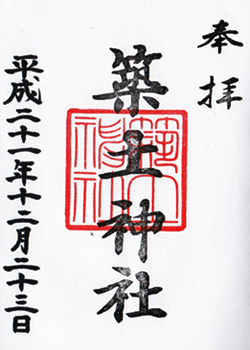 奉拝
築土神社
平成二十一年十二月二十三日